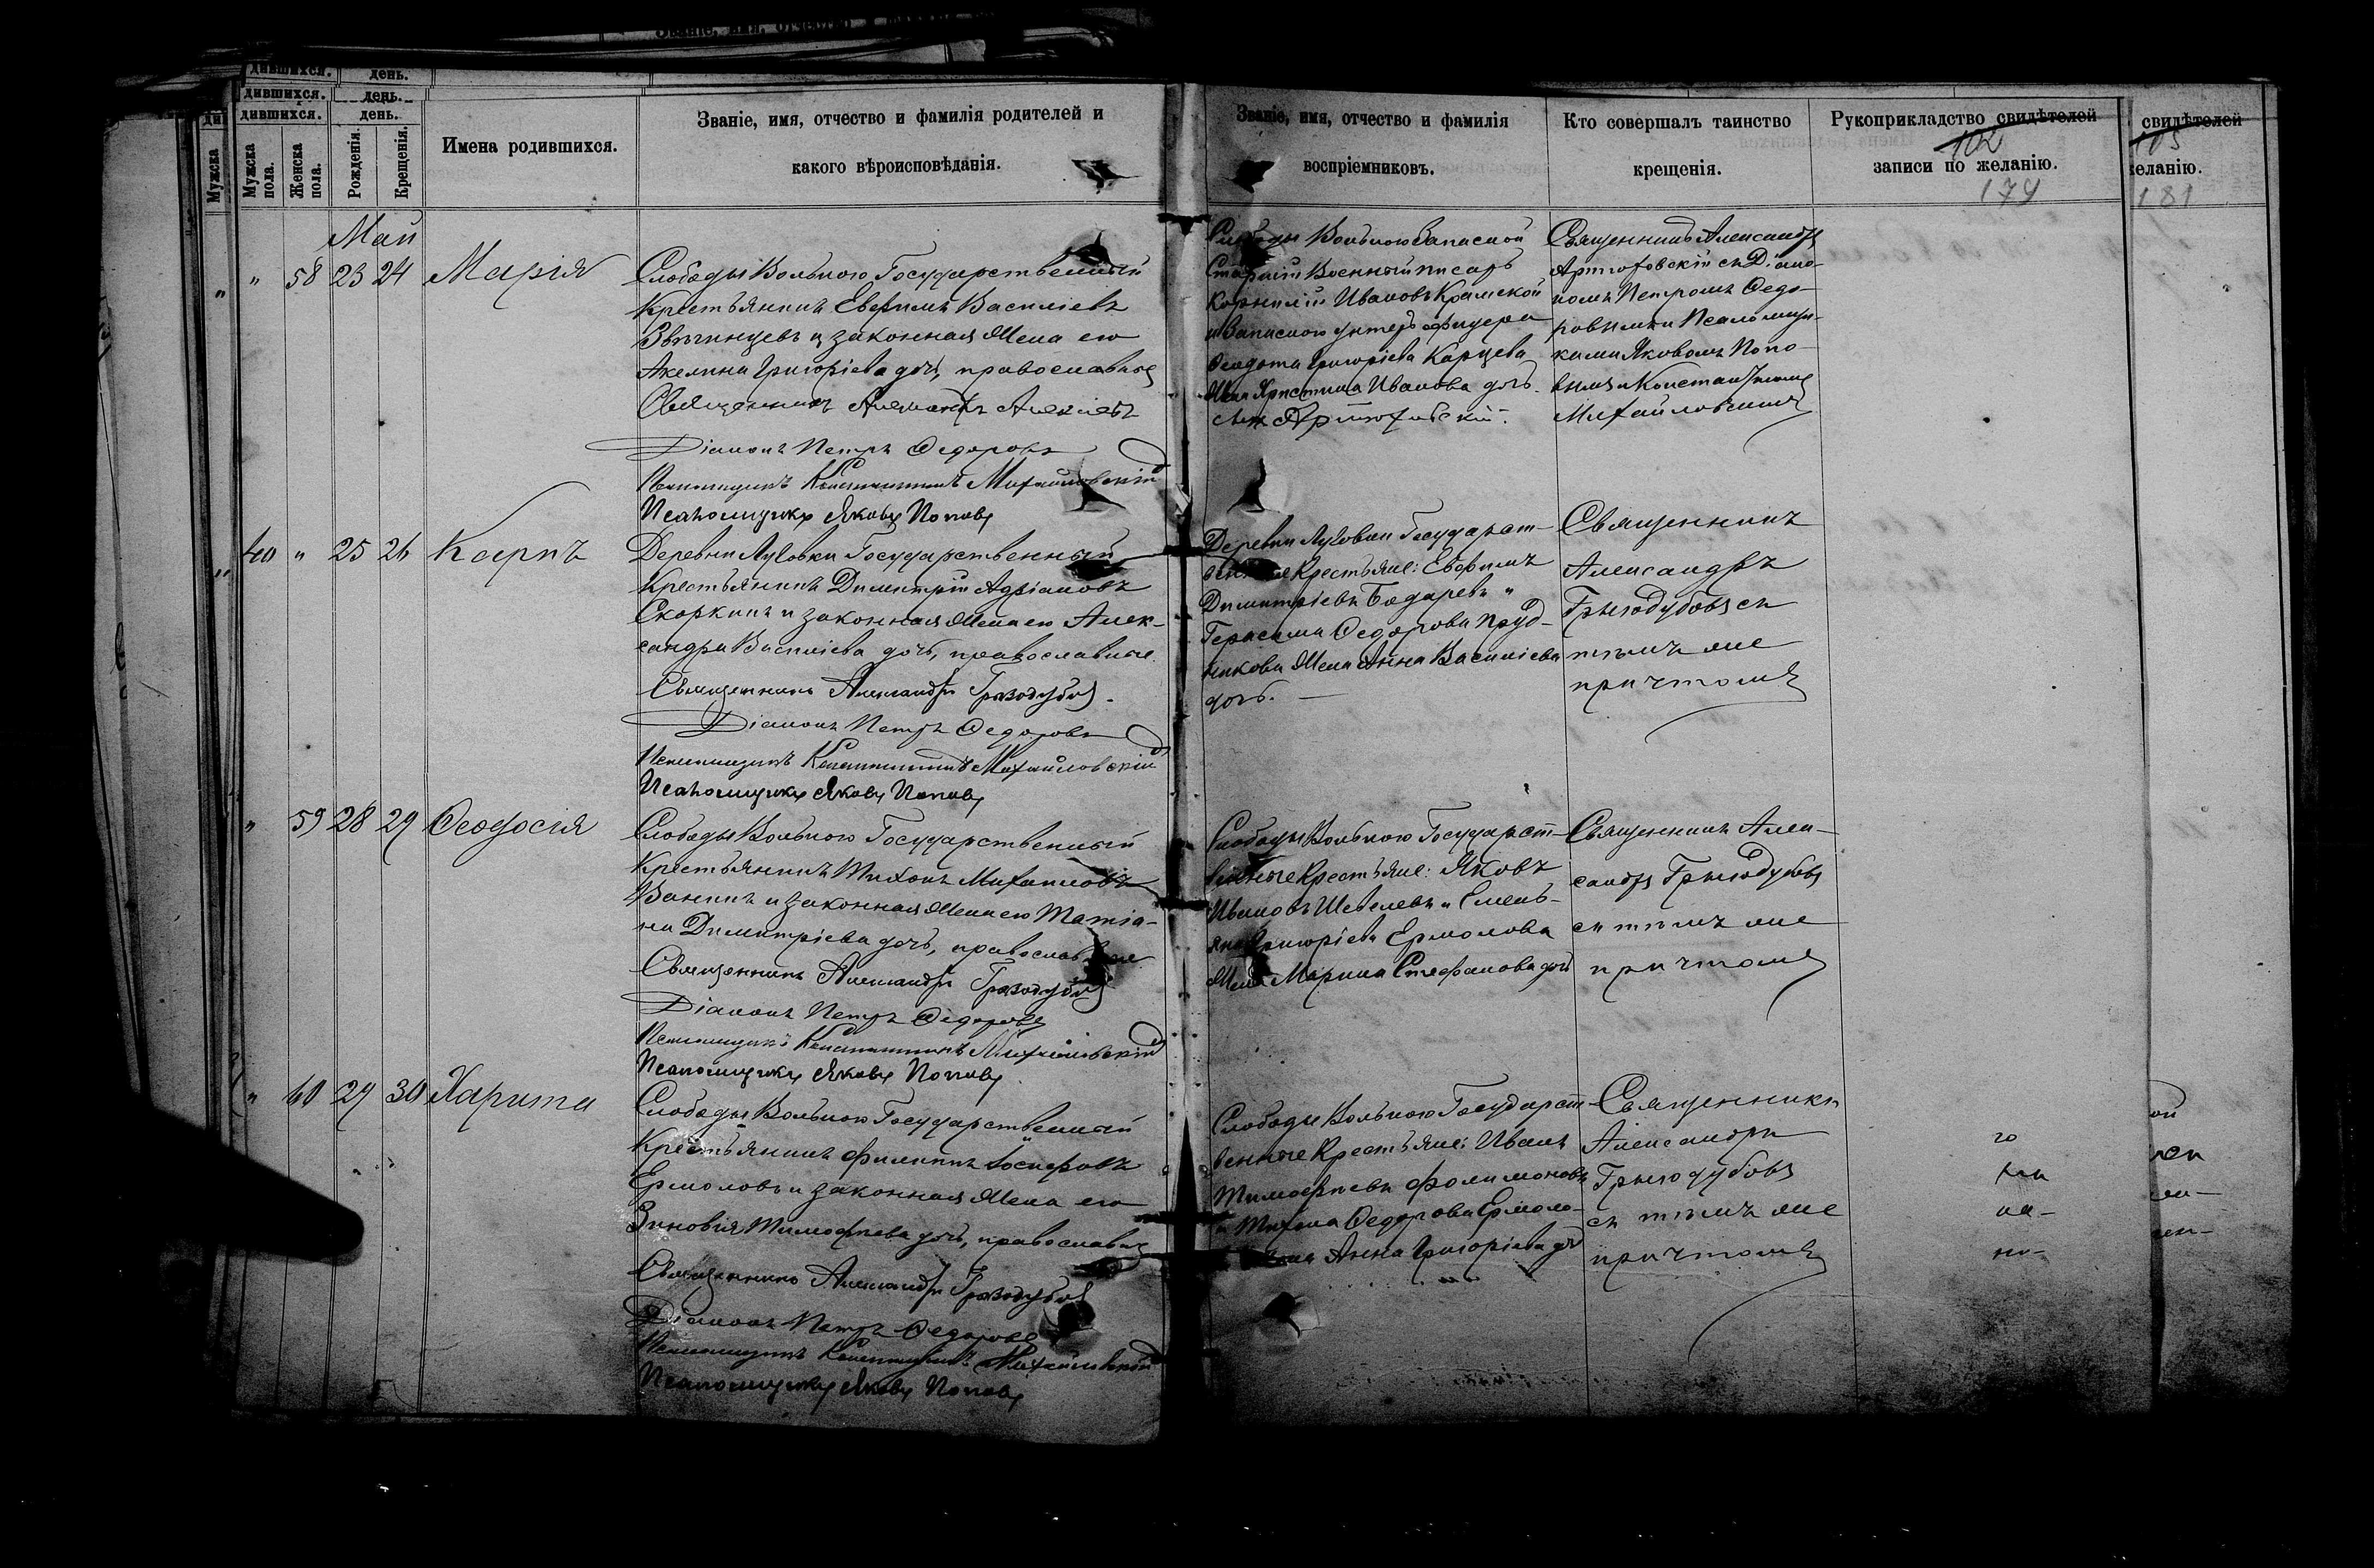 дившихся. день.
дившихся. день.
дившихся. день.
Мужска
Мужска пола.
Женска пола.
Рожденія.
Крещенія.
Имена родившихся.
Званіе, имя, отчество и фамилія родителей и
какого вѣроисповѣданія.
Званіе, имя, отчество и фамилія
воспріемниковъ.
Кто совершалъ таинство
крещенія.
Рукоприкладство свидѣтелей
записи по желанію.
102
174
свидѣтелей
еланію.
181
Май
" 58 23 24 Марія
Слободы Вольной Государственный
Крестьянинъ Евфимъ Василіевъ
Звягинцевъ и законная Жена его
Акелина Григоріева дочь, православные
Священникъ Александръ Алексіевъ
Діаконъ Петръ Ѳедоровъ
Псаломщикъ Константинъ Михайловскій
Псаломщикъ Яковъ Поповъ
Слободы Вольной Запасной
Старшій Военный писарь
Корнилій Ивановъ Крамской
и Запасного унтеръ офицера
Ѳеодота Григоріева Карцева
Жена Христина Иванова дочь.
Священникъ Александръ
Артюховскій съ Діако-
номъ Петромъ Ѳедо-
ровымъ и Псаломщи-
ками Яковомъ Попо-
вымъ и Константиномъ
Михайловскимъ
40 " 25 26 Карпъ
Деревни Луговки Государственный
Крестьянинъ Димитрій Адріановъ
Скоркинъ и законная Жена его Алек-
сандра Василіева дочь, православные.
Священникъ Александръ Гризодубовъ.
Діаконъ Петръ Ѳедоровъ
Псаломщикъ Константинъ Михайловскій
Псаломщикъ Яковъ Поповъ
Деревни Луговки Государст-
венные Крестьяне: Евфимъ
Димитріевъ Бодаревъ и
Герасима Ѳедорова Пруд-
никова Жена Анна Василіева
дочь.
Священникъ
Александръ
Гризодубовъ съ
тѣмъ же
причтомъ
" 59 28 29 Ѳеодосія
Слободы Вольной Государственный
Крестьянинъ Тихонъ Михаиловъ
Ванинъ и законная Жена его Татіа-
на Димитріева дочь, православные
Священникъ Александръ Гризодубовъ
Діаконъ Петръ Ѳедоровъ
Псаломщикъ Константинъ Михайловскій
Псаломщикъ Яковъ Поповъ
Слободы Вольной Государст-
венные Крестьяне: Яковъ
Ивановъ Шевелевъ и Емель-
яна Григоріева Ермолова
Жена Марина Стефанова дочь
Священникъ Алек-
сандръ Гризодубовъ
съ тѣмъ же
причтомъ
" 60 29 30 Харита
Слободы Вольной Государственный
Крестьянинъ Филиппъ Іосифовъ
Ермоловъ и законная Жена его
Зиновія Тимофѣева дочь, православные
Священникъ Александръ Гризодубовъ
Діаконъ Петръ Ѳедоровъ
Псаломщикъ Константинъ Михайловскій
Псаломщикъ Яковъ Поповъ
Слободы Вольной Государст-
венные Крестьяне: Иванъ
Тимофѣевъ Филимоновъ
и Тихона Ѳедорова Ермоло-
Анна Григоріева дочь
Священникъ
Александръ
Гризодубовъ
съ тѣмъ же
причтомъ